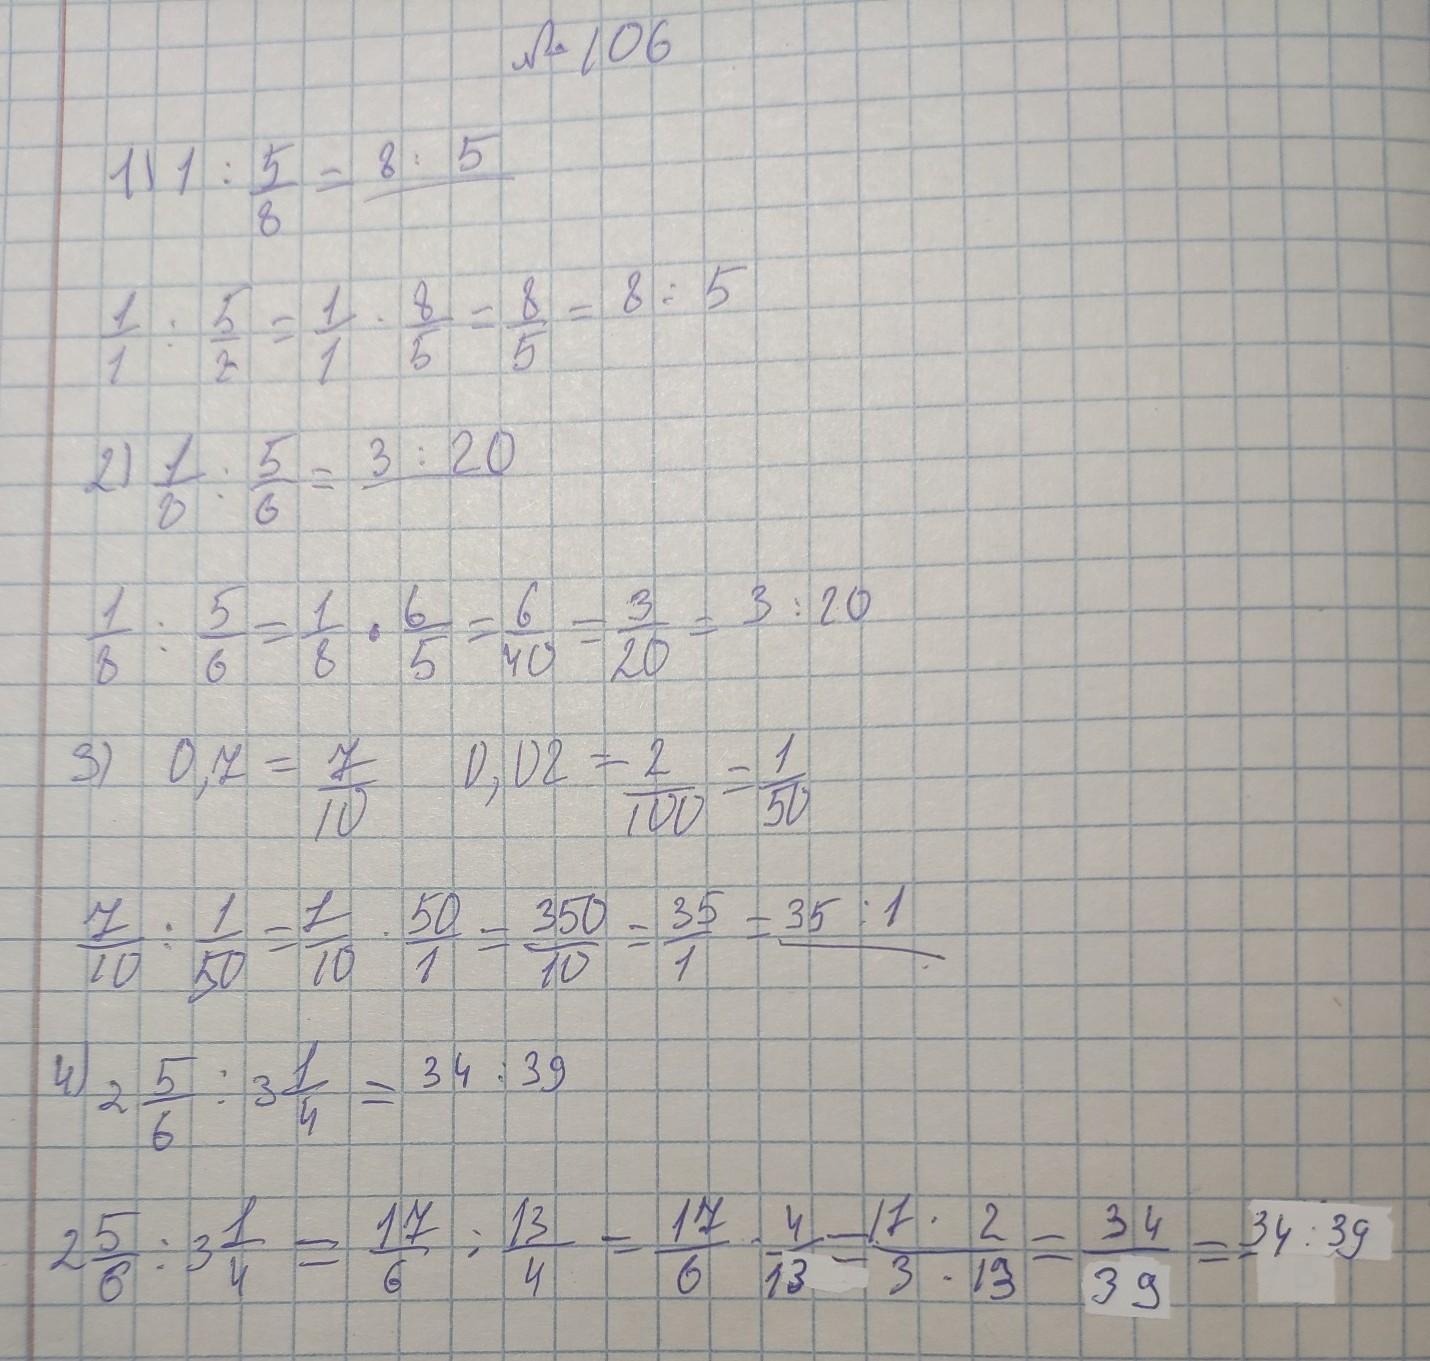 № 106
1) 1 : 5/8 = 8 : 5
1/1 : 5/2 = 1/1 · 8/5 = 8/5 = 8 : 5
2) 1/8 : 5/6 = 3 : 20
1/8 : 5/6 = 1/8 · 6/5 = 6/40 = 3/20 = 3 : 20
3) 0,7 = 7/10 0,02 = 2/100 = 1/50
7/10 : 1/50 = 7/10 · 50/1 = 350/10 = 35/1 = 35 : 1
4) 2 5/6 : 3 1/4 = 34 : 39
2 5/6 : 3 1/4 = 17/6 : 13/4 = 17/6 · 4/13 = 17 · 2/3 · 13 = 34/39 = 34 : 39